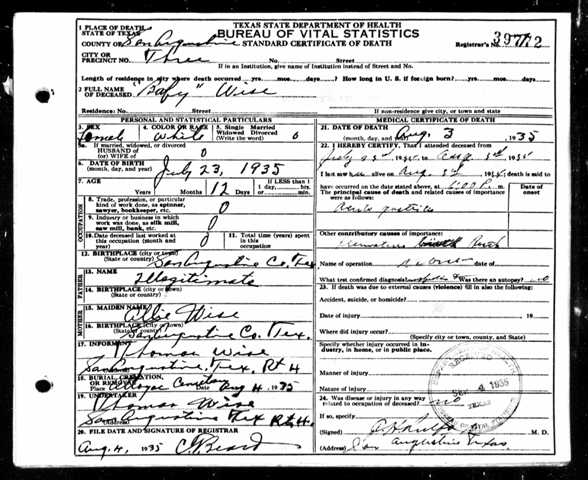 TEXAS STATE DEPARTMENT OF HEALTH
BUREAU OF VITAL STATISTICS
STANDARD CERTIFICATE OF DEATH
1 PLACE OF DEATH
STATE OF TEXAS
COUNTY OF San Augustine
Registrar's No. 39772
CITY OR
PRECINCT NO. Three No. Street
If in an Institution, give name of Institution instead of Street and No.
Length of residence in city where death occurred yrs. mos. days? How long in U. S. if foreign born? yrs. mos. days
2 FULL NAME OF
DECEASED "Baby" Wise
Residence: No. Street
If non-residence give city, or town and state
PERSONAL AND STATISTICAL PARTICULARS
3. SEX 4. COLOR OR RACE 5. Single Married
Widowed Divorced
(Write the word)
White 0
5a. If married, widowed, or divorced
HUSBAND OF
(or) WIFE OF 0
6. DATE OF BIRTH
(month, day, and year) July 23, 1935
7. AGE Years Months 12 Days IF LESS than 1
1 day, hrs.
or min.
8. Trade, profession, or particular
kind of work done, as spinner,
sawyer, bookkeeper, etc. 0
9. Industry or business in which
work was done, as silk mill,
saw mill, bank, etc. 0
10. Date deceased last worked at
this occupation (month and
year) 0
11. Total time (years)
spent in this
occupation
12. BIRTHPLACE (city or town)
(State or country) San Augustine Co. Tex
FATHER
13. NAME Illegitimate
14. BIRTHPLACE (city or town)
(State or country)
MOTHER
15. MAIDEN NAME Wise
16. BIRTHPLACE (city or town)
(State or country) San Augustine Co. Tex.
17. INFORMANT Thomas Wise
San Augustine, Tex, Rt 4
18. BURIAL, CREMATION,
OR REMOVAL
Place Cemetery Date Aug 4, 1935
19. UNDERTAKER Thomas Wise
San Augustine Tex Rt. 4.
20. FILE DATE AND SIGNATURE OF REGISTRAR
Aug. 4, 1935 Beard
MEDICAL CERTIFICATE OF DEATH
21. DATE OF DEATH
(month, day, and year) Aug. 3, 1935
22. I HEREBY CERTIFY, That I attended deceased from
July 1935, to Aug. 1935
I last saw alive on Aug. 1935, death is said to
have occurred on the date stated above, at m.
The principal cause of death and related causes of importance
were as follows:
Date of
onset
Acute
Other contributary causes of importance:
Birth
Name of operation none date of
What test confirmed diagnosis? Was there an autopsy? no
23. If death was due to external causes (violence) fill in also the following:
Accident, suicide, or homicide?
Date of injury 19
Where did injury occur?
(Specify city or town, county, and State)
Specify whether injury occurred in industry, in home, or in public place.
Manner of injury
Nature of injury
24. Was disease or injury in any way
related to occupation of deceased? no
If so, specify
(Signed) M. D.
(Address) San Augustine Texas
SEP 4 1935
TEXAS